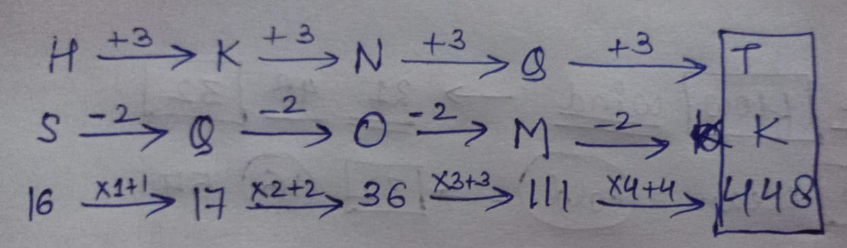 H +3 K +3 N +3 Q +3 T
S -2 Q -2 O -2 M -2 K
16 ×1+1 17 ×2+2 36 ×3+3 111 ×4+4 448